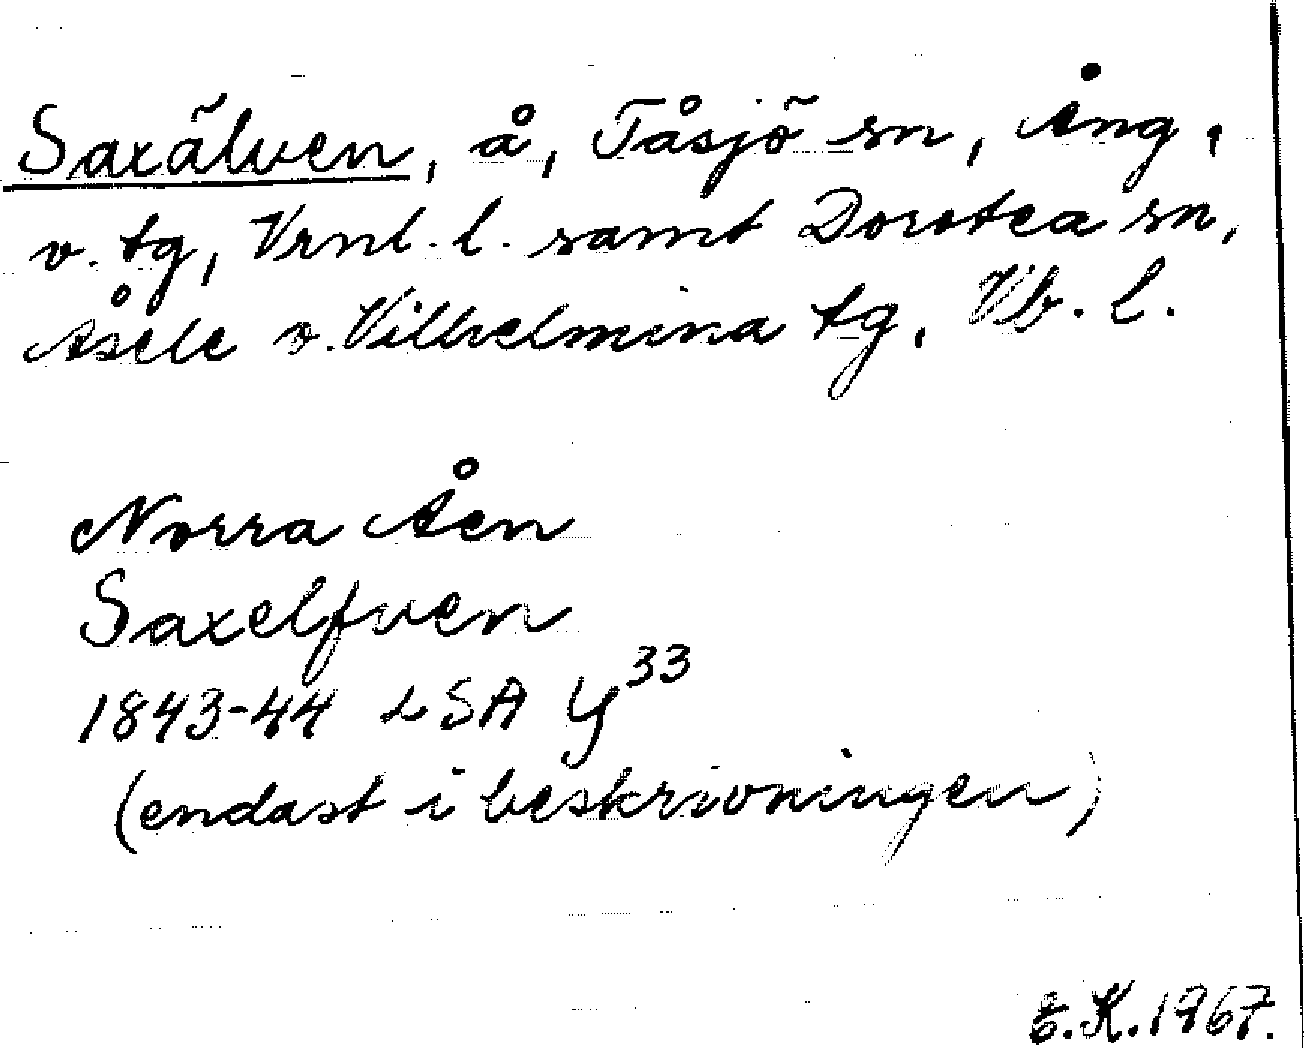 Saxälven, å, Tåsjö sn, Ång,
v. tg, Vrnl. l. samt Dorotea sn,
Åsele o. Vilhelmina tg, Vb. l.
Norra Åen
Saxelfven
1843-44 LSA Y³³
(endast i beskrivningen)
E.K. 1967.